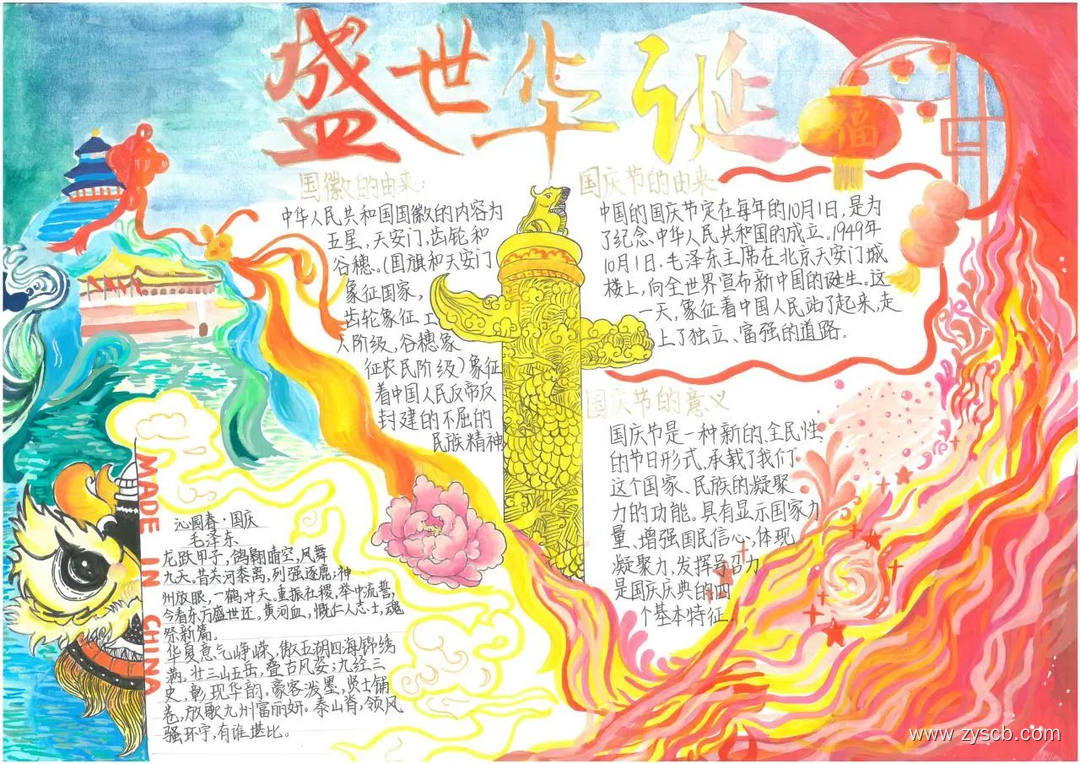 盛世华诞
福
国徽的由来:
中华人民共和国国徽的内容为
五星,天安门,齿轮和
谷穗。(国旗和天安门
象征国家,
齿轮象征工
人阶级,谷穗象
征农民阶级)象征
着中国人民反帝反
封建的不屈的
民族精神
国庆节的由来
中国的国庆节定在每年的10月1日,是为
了纪念中华人民共和国的成立。1949年
10月1日,毛泽东主席在北京天安门城
楼上,向全世界宣布新中国的诞生。这
一天,象征着中国人民站了起来,走
上了独立、富强的道路。
国庆节的意义
国庆节是一种新的、全民性
的节日形式,承载了我们
这个国家、民族的凝聚
力的功能。具有显示国家力
量、增强国民信心,体现
凝聚力,发挥号召力
是国庆庆典的四
个基本特征
MADE IN CHINA
沁园春·国庆
毛泽东
龙跃甲子,鸽翱晴空,凤舞
九天。昔天河黍离,列强逐鹿;神
州放眼,一鹤冲天。重振社稷,举中流誓,
今看东方盛世还。黄河血,慨仁人志士,魂
祭新篇。
华夏意气峥嵘,傲五湖四海锦绣
满,壮三山五岳,叠古风姿;九经三
史,彰现华韵。豪客泼墨,贤士铺
卷,放歌九州富丽妍。泰山脊,领风
骚环宇,有谁堪比。
www.zyscb.com